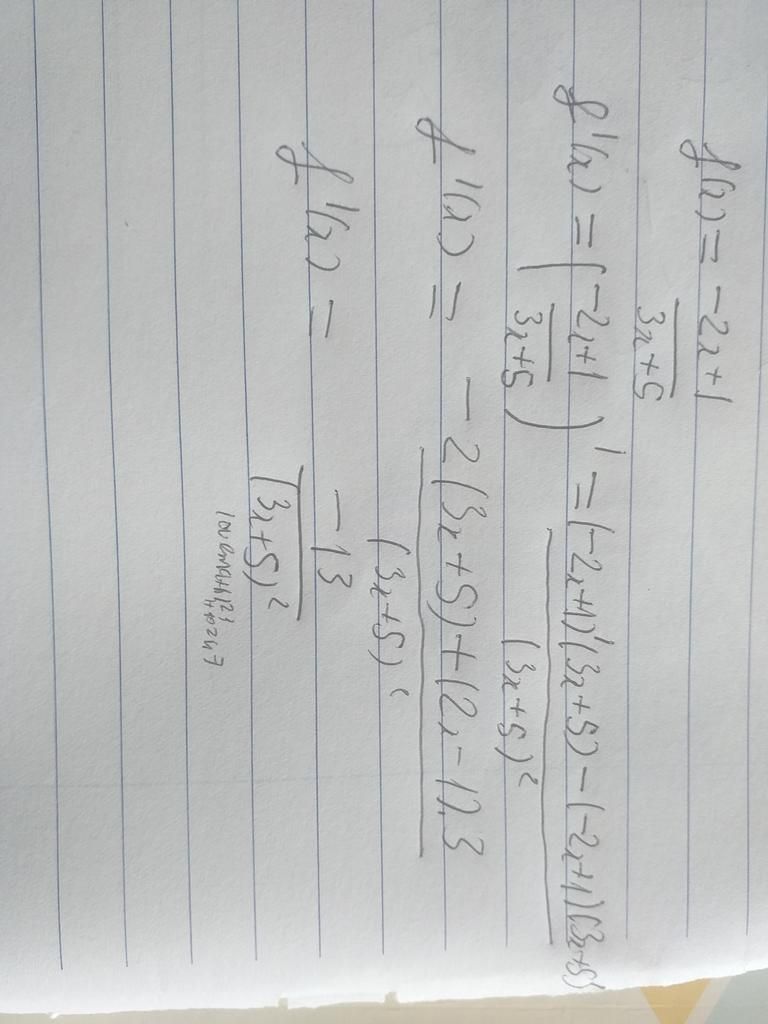 f(x) = -2x+1
3x+5
f'(x) = (-2x+1 / 3x+5)' = (-2x+1)'(3x+5) - (-2x+1)(3x+5)'
(3x+5)²
f'(x) = -2(3x+5)+(2x-1).3
(3x+5)²
f'(x) = -13
(3x+5)²